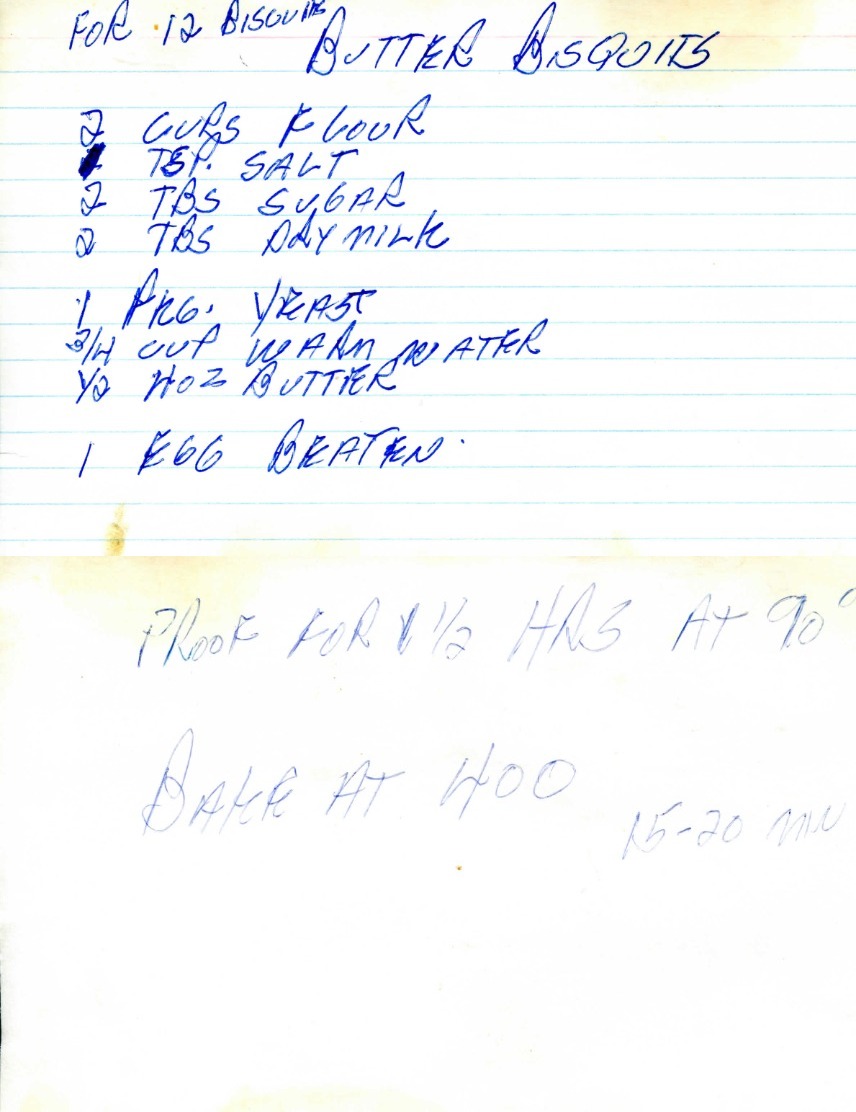 FOR 12 BISQUITS
BUTTER BISQUITS
2 CUPS FLOUR
1 TSP. SALT
2 TBS SUGAR
2 TBS DRY MILK
1 PKG. YEAST
3/4 CUP WARM WATER
1/2 4OZ BUTTER
1 EGG BEATEN.
PROOF FOR 1 1/2 HRS AT 90°
BAKE AT 400
15-20 MIN